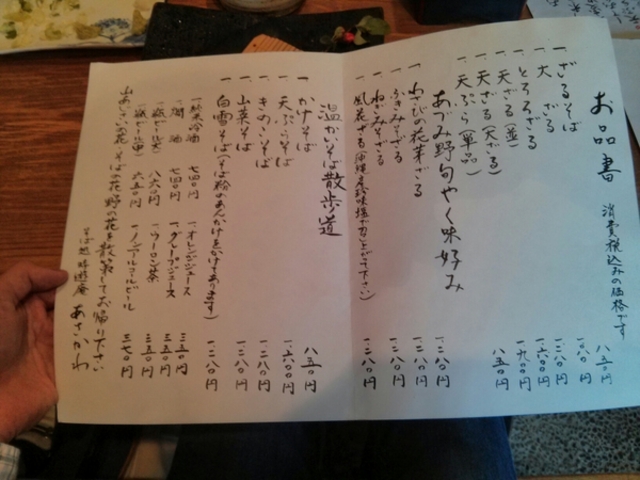 お品書 消費税込みの価格です
一 ざるそば 八五〇円
一 大ざる
一 とろろざる 一二八〇円
一 天ざる(並) 一六〇〇円
一 天ざる(天ざる) 一九〇〇円
一 天ぷら(単品) 八五〇円
あづみ野旬やく味好み
一 わさびの花芽ざる 一二八〇円
一 ふきみそざる 一二八〇円
一 ねぎみそざる 一二八〇円
一 風花ざる 一二八〇円
温かいそば散歩道
一 かけそば 八五〇円
一 天ぷらそば 一六〇〇円
一 きのこそば 一二八〇円
一 山菜そば 一二八〇円
一 白雪そば(そば粉のあんかけをかけてあります) 一二八〇円
一 純米冷酒 七四〇円 一 オレンジジュース 三五〇円
一 燗酒 七四〇円 一 グレープジュース 三五〇円
一 瓶ビール(大) 八六〇円 一 ウーロン茶 三五〇円
一 瓶ビール(中) 六五〇円 一 ノンアルコールビール 三七〇円
そばの花野の花を散策してお帰り下さい
あさかわ